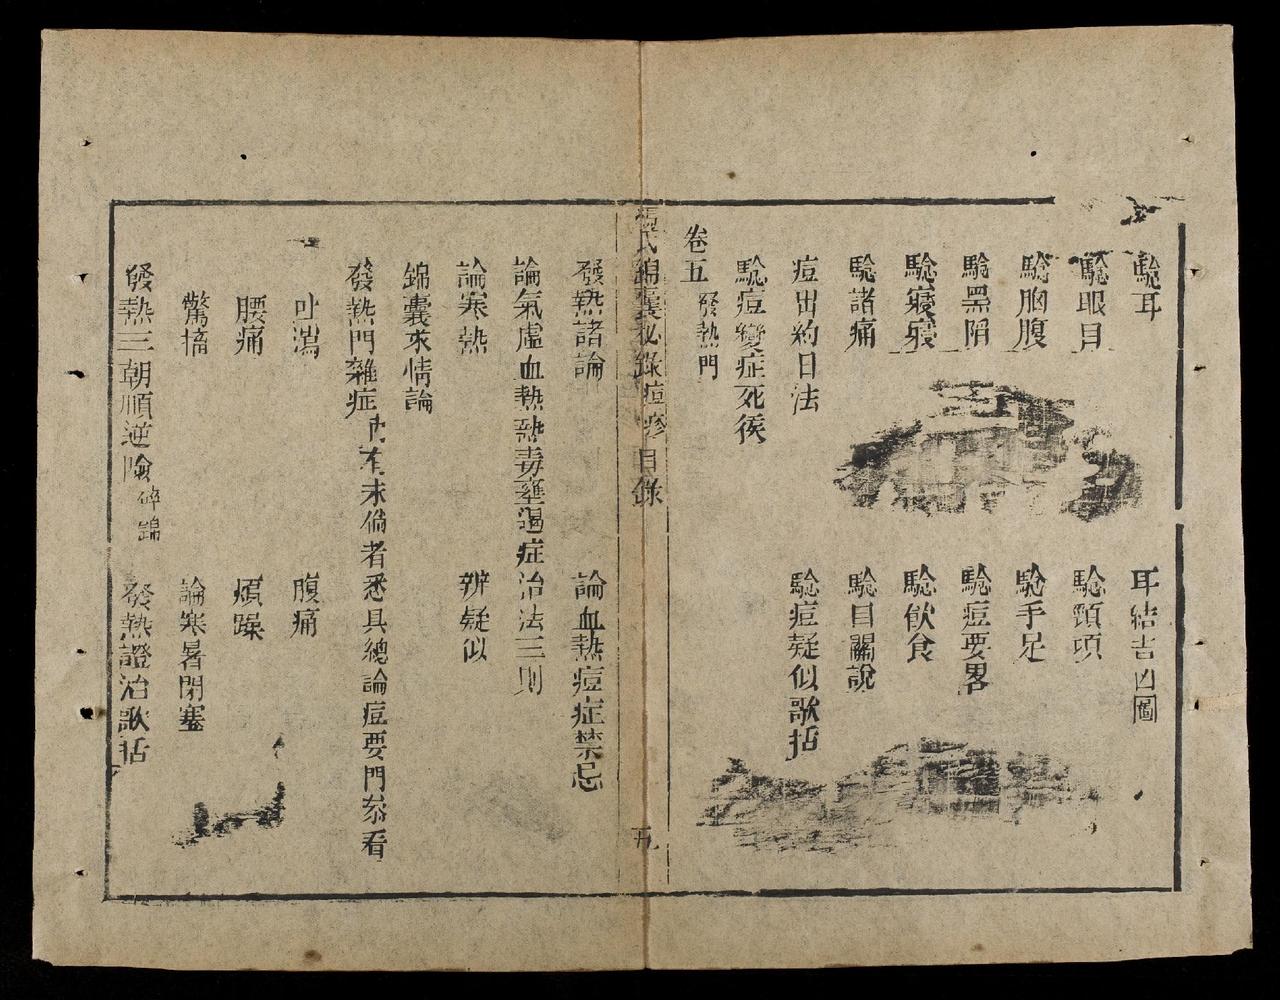 騐耳　耳結吉凶圖
騐眼目　騐頸項
騐胸腹　騐手足
騐黑陷　騐痘要畧
騐寢寢　騐飲食
騐諸痛　騐目關說
痘出約日法　騐痘疑似歌括
騐痘變症死候
卷五　發熱門
馮氏錦囊秘錄痘疹目錄　五
發熱諸論　論血熱痘症禁忌
論氣虛血熱熱毒壅遏症治法三則
論寒熱　辨疑似
錦囊求情論
發熱門雜症内有未備者悉具總論痘要門叅看
吐瀉　腹痛
腰痛　煩躁
驚搐　論寒暑閉塞
發熱三朝順逆險碎錦　發熱證治歌括